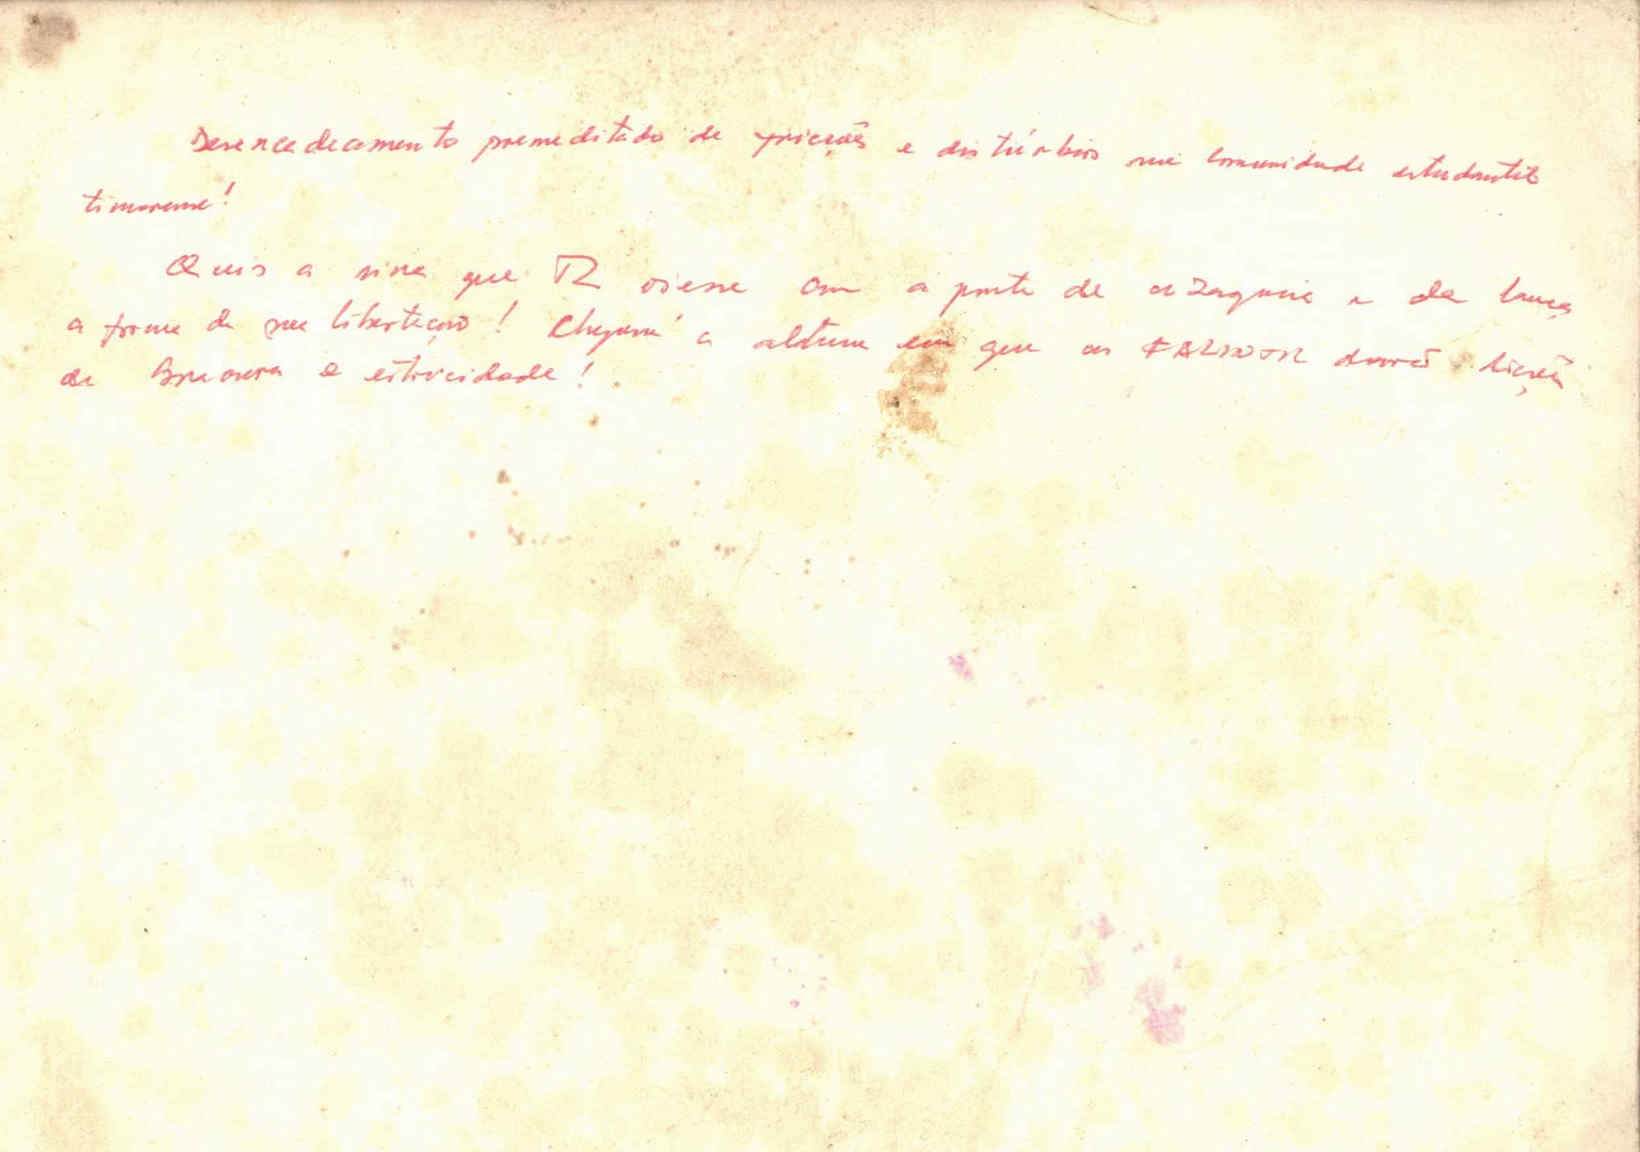 Desencadeamento premeditado de fricções e distúrbios na comunidade estudantil
timorense!
Quis a sina que TL visse com a ponta de azagaia e da lança
a forma de sua libertação! Chegará a altura em que as FALINTIL darão lições
de bravura e estoicidade!